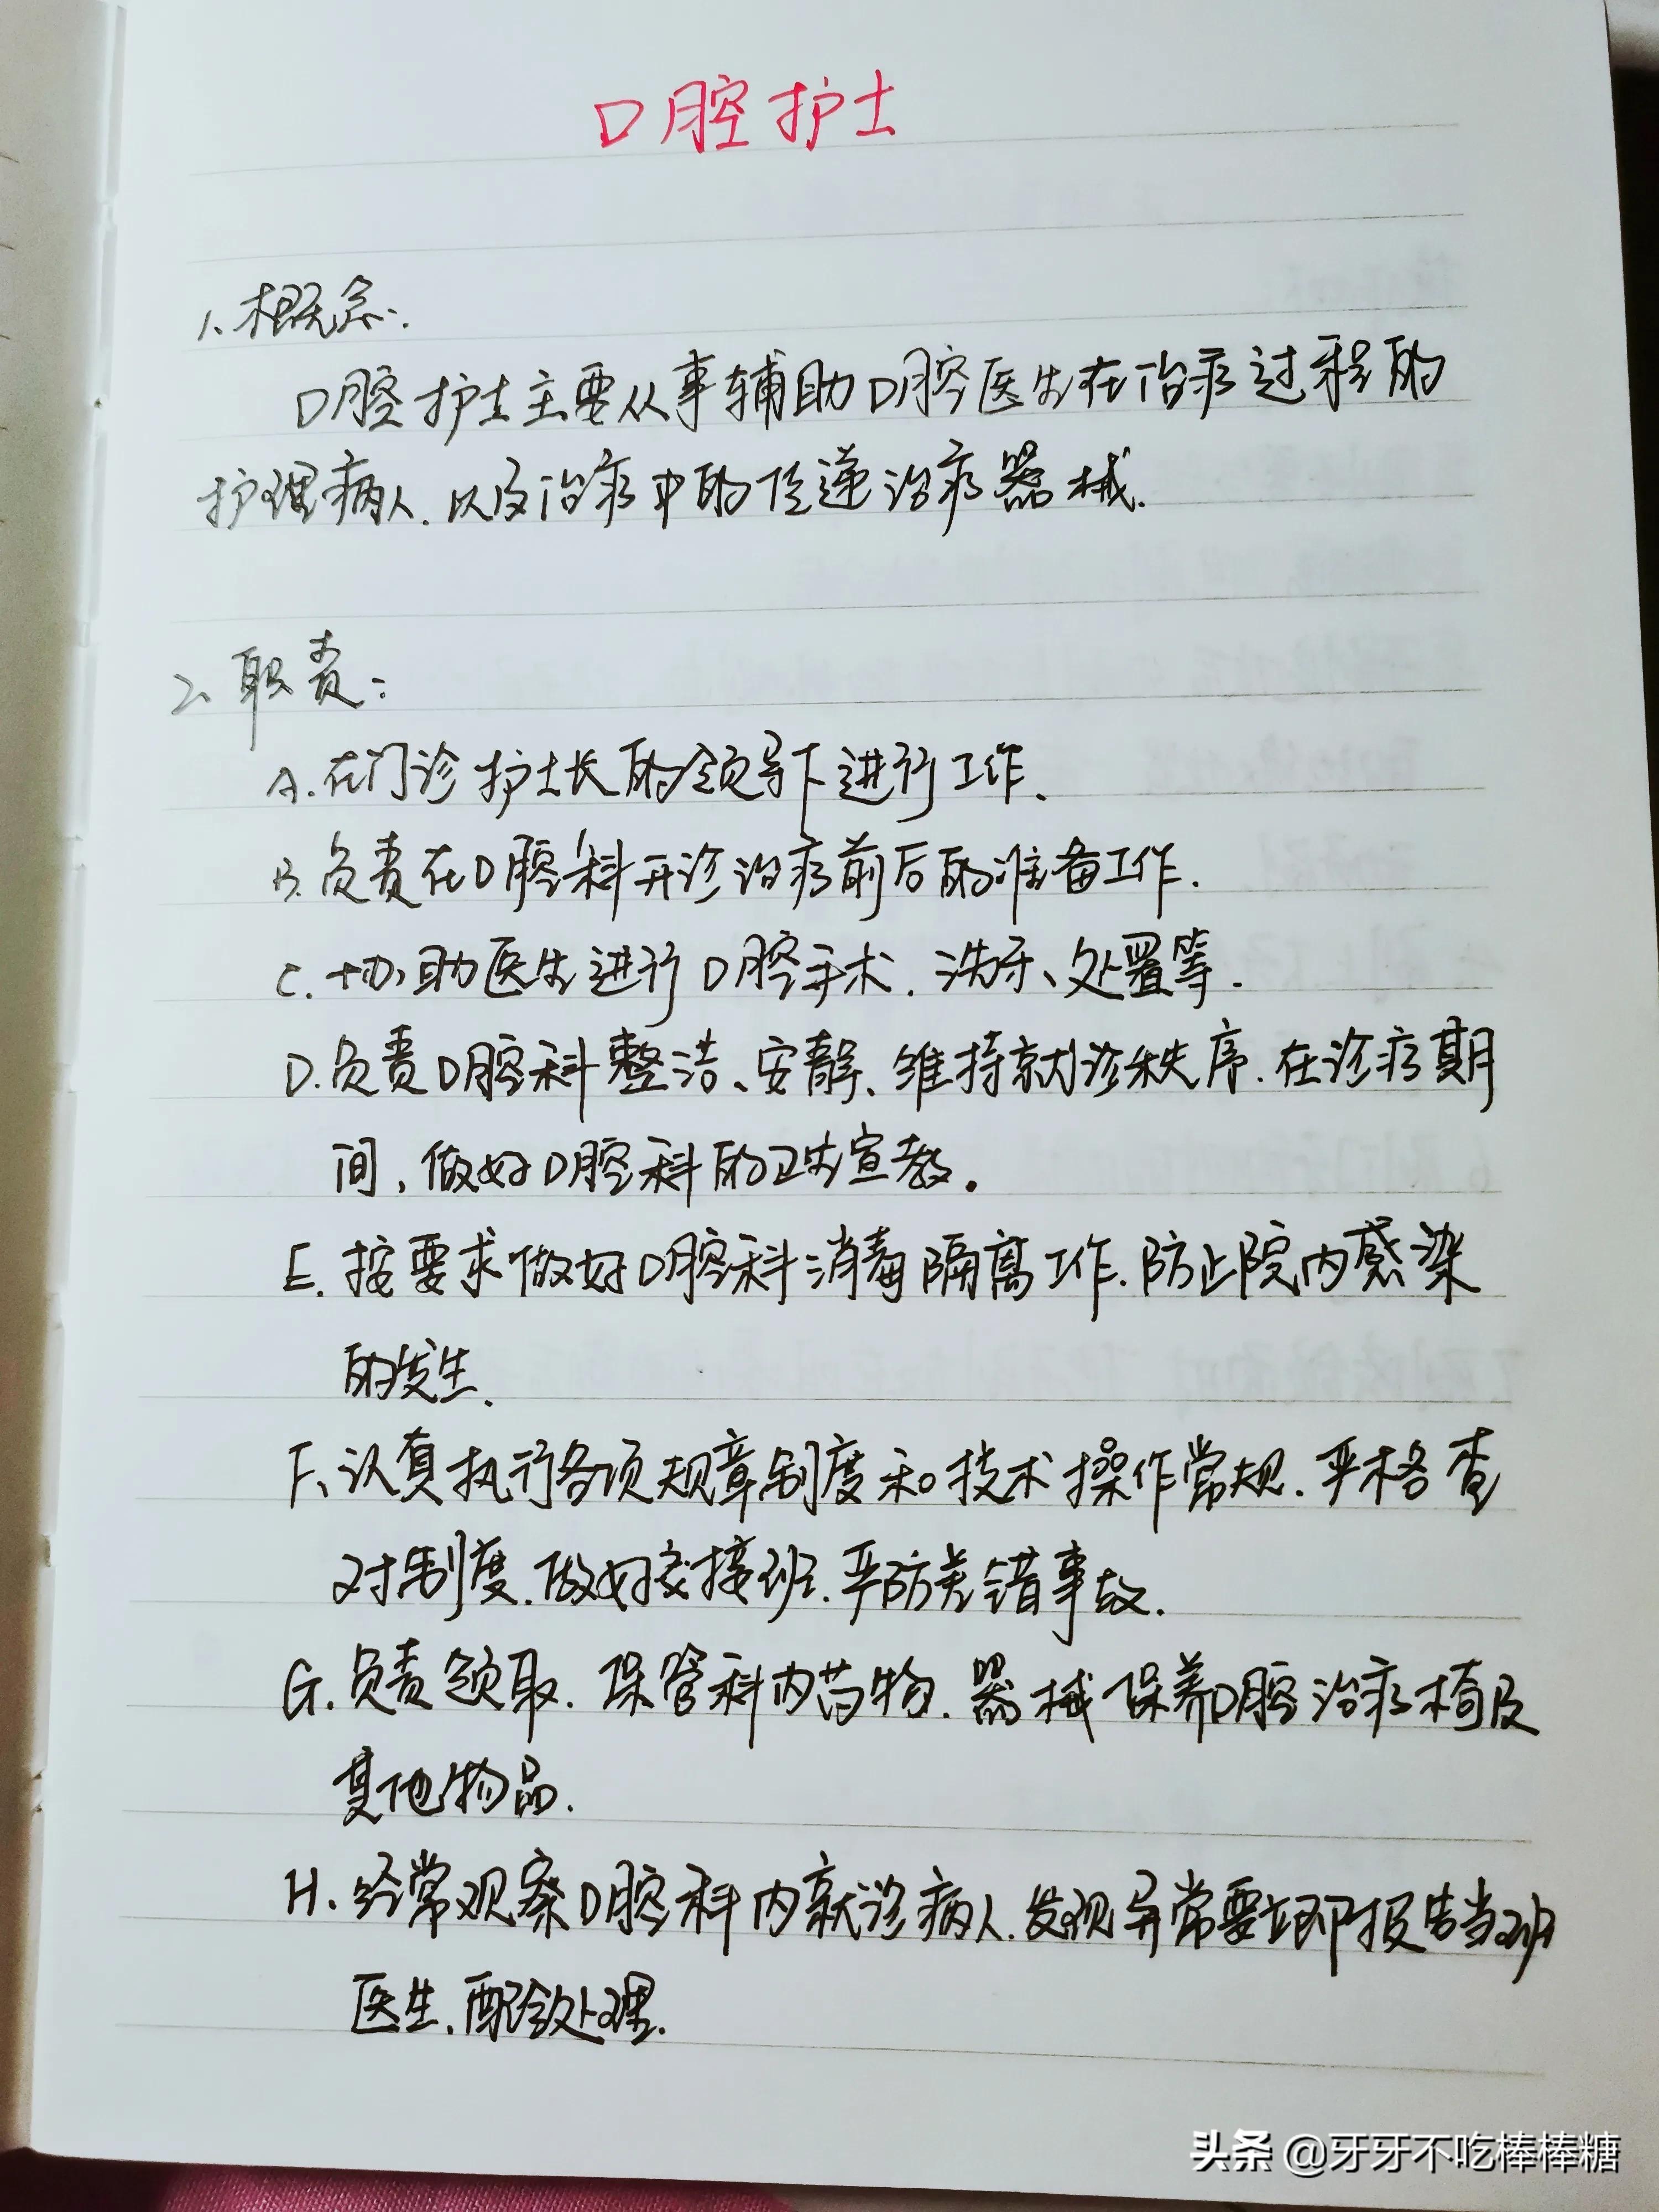 口腔护士
1、概念:
口腔护士主要从事辅助口腔医生在治疗过程的
护理病人.以及治疗中的传递治疗器械.
2、职责:
A.在门诊护士长的领导下进行工作.
B.负责在口腔科开诊治疗前后的准备工作.
C.协助医生进行口腔手术.洗牙、处置等.
D.负责口腔科整洁、安静、维持就诊秩序.在诊疗期
间,做好口腔科的卫生宣教。
E.按要求做好口腔科消毒隔离工作.防止院内感染
的发生.
F、认真执行各项规章制度和技术操作常规.严格查
对制度.做好交接班.严防差错事故.
G.负责领取.保管科内药物.器械保养口腔治疗椅及
其他物品.
H.经常观察口腔科内就诊病人.发现异常要立即报告当班
医生.配合处理.
头条 @牙牙不吃棒棒糖